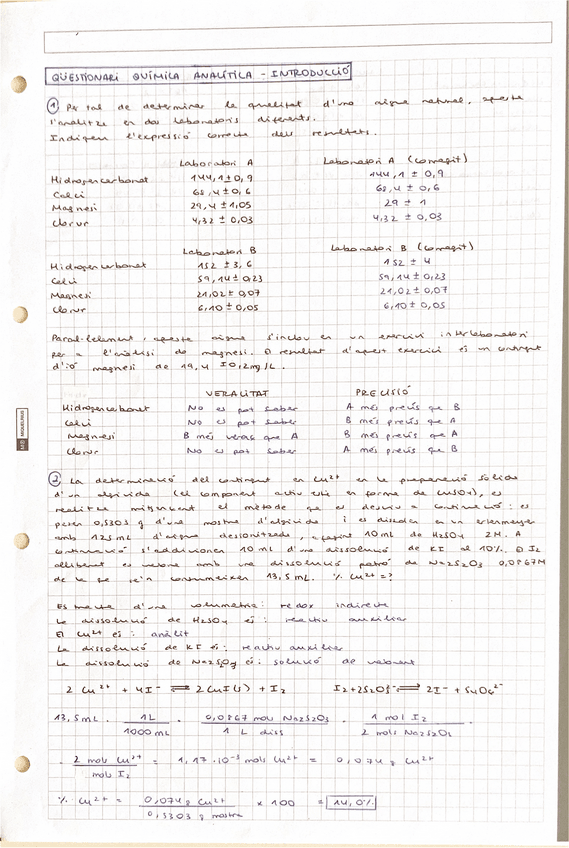 QÜESTIONARI QUÍMICA ANALÍTICA - INTRODUCCIÓ
1 Per tal de determinar la qualitat d'una aigua natural, aquesta
s'analitza en dos laboratoris diferents.
Indiqueu l'expressió correcta dels resultats.
Laboratori A Laboratori A (corregit)
Hidrogencarbonat 144,1 ± 0,9 144,1 ± 0,9
Calci 68,4 ± 0,6 68,4 ± 0,6
Magnesi 29,4 ± 1,05 29 ± 1
Clorur 4,32 ± 0,03 4,32 ± 0,03
Laboratori B Laboratori B (corregit)
Hidrogencarbonat 152 ± 3,6 152 ± 4
Calci 59,14 ± 0,23 59,14 ± 0,23
Magnesi 21,02 ± 0,07 21,02 ± 0,07
Clorur 6,10 ± 0,05 6,10 ± 0,05
Paral·lelament, aquesta aigua s'inclou en un exercici interlaboratori
per a l'anàlisi de magnesi. El resultat d'aquest exercici és un contingut
d'ió magnesi de 19,4 ± 0,2 mg/L.
VERACITAT PRECISIÓ
Hidrogencarbonat No es pot saber A més precís que B
Calci No es pot saber B més precís que A
Magnesi B més veraç que A B més precís que A
Clorur No es pot saber A més precís que B
MIQUELRIUS
2 La determinació del contingut en Cu²⁺ en la preparació sòlida
d'un algicida (el component actiu està en forma de CuSO₄), es
realitza mitjançant el mètode que es descriu a continuació: es
pesen 0,5303 g d'una mostra d'algicida i es dissolen en un erlenmeyer
amb 125 mL d'aigua desionitzada, afegint 10 mL de H₂SO₄ 2M. A
continuació s'addicionen 10 mL d'una dissolució de KI al 10%. El I₂
alliberat es valora amb una dissolució patró de Na₂S₂O₃ 0,0867M
de la que se'n consumeixen 13,5 mL. % Cu²⁺ = ?
Es tracta d'una volumetria: redox indirecta
La dissolució de H₂SO₄ és: reactiu auxiliar
El Cu²⁺ és: anàlit
La dissolució de KI és: reactiu auxiliar
La dissolució de Na₂S₂O₃ és: solució de valorant
2 Cu²⁺ + 4I⁻ ⇌ 2 CuI(s) + I₂ I₂ + 2S₂O₃²⁻ ⇌ 2I⁻ + S₄O₆²⁻
13,5 mL · 1L / 1000 mL · 0,0867 mol Na₂S₂O₃ / 1 L diss · 1 mol I₂ / 2 mols Na₂S₂O₃
· 2 mols Cu²⁺ / mol I₂ = 1,17·10⁻³ mols Cu²⁺ = 0,074 g Cu²⁺
% Cu²⁺ = 0,074 g Cu²⁺ / 0,5303 g mostra × 100 = 14,0%